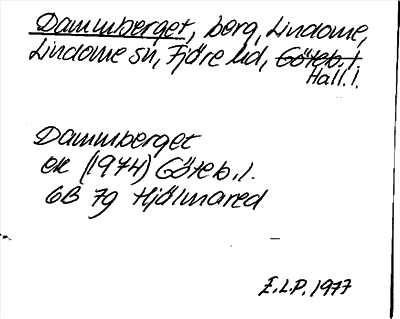 Dammberget, berg, Lindome,
Lindome sn, Fjäre hd, Göteb. l.
Hall. l.
Dammberget
ek (1974) Göteb. l.
6B 7g Hjälmared
E.L.P. 1977